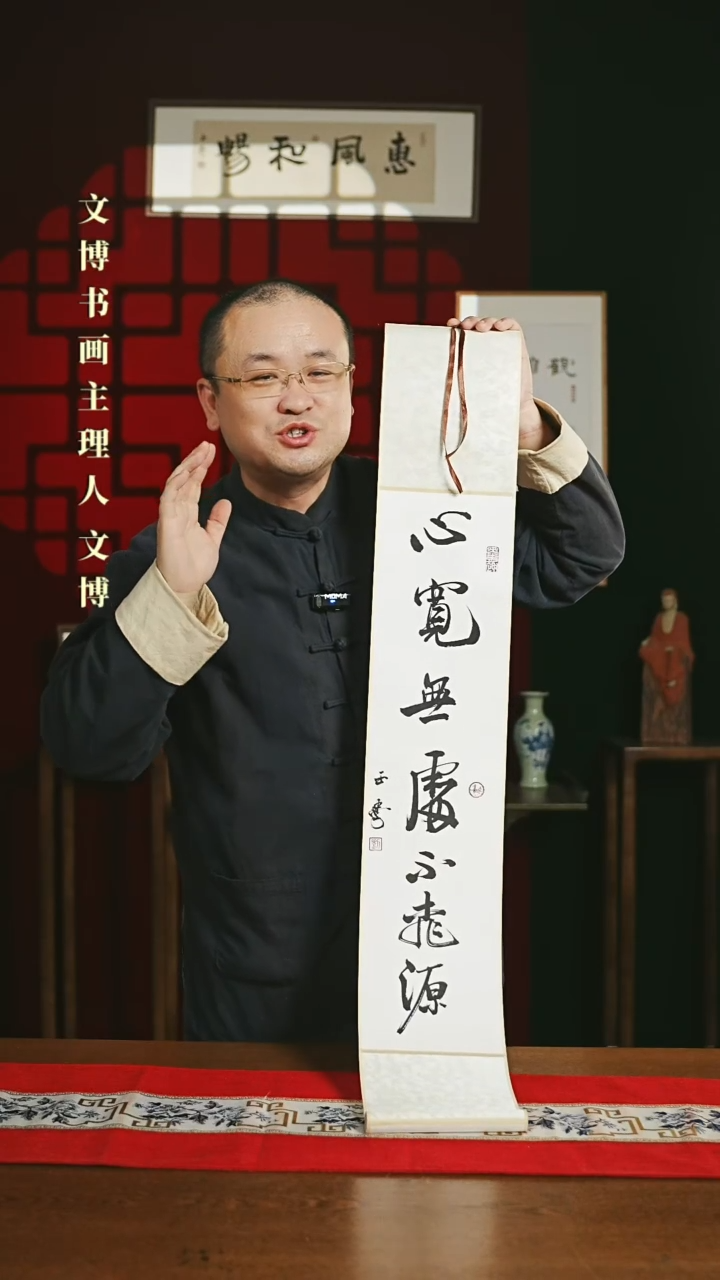 惠風和暢
文博书画主理人文博
觀
心寬無處不桃源
MOMA